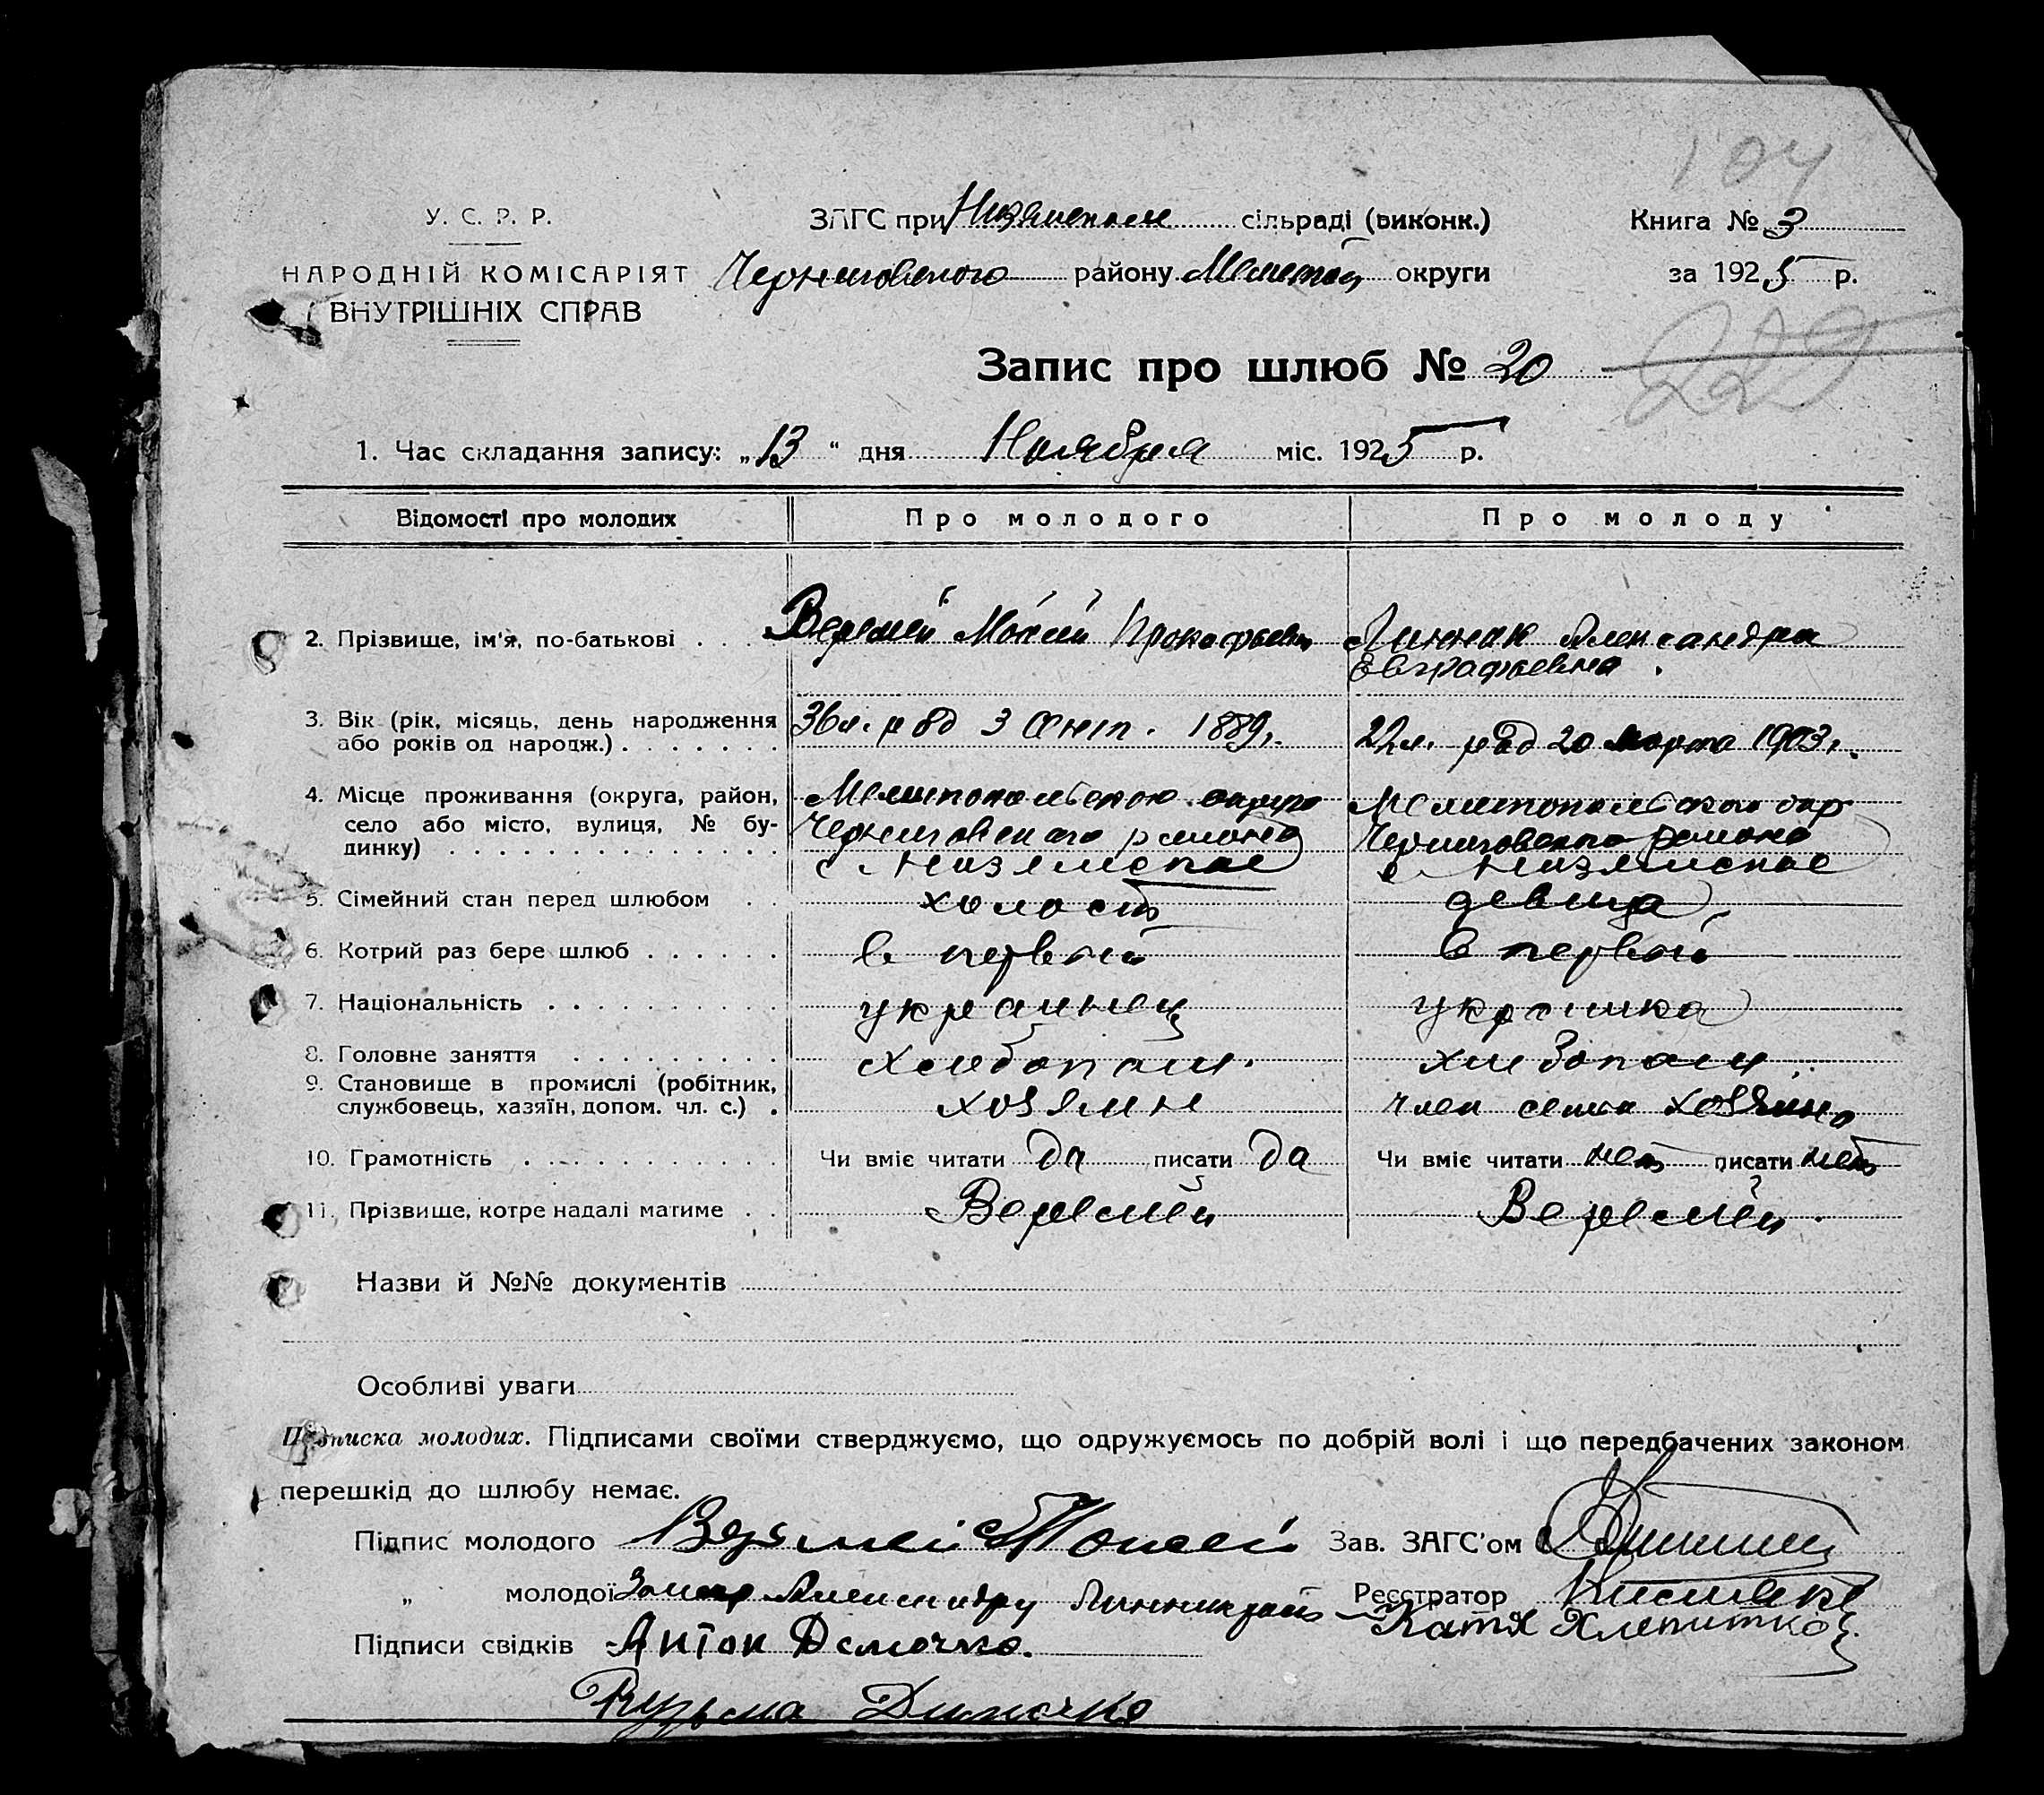 104
У. С. Р. Р.
ЗАГС при Низянском сільраді (виконк.)
Книга № 3
НАРОДНІЙ КОМІСАРІЯТ
ВНУТРІШНІХ СПРАВ
Черниговского району Мелитоп округи
за 1925 р.
229
Запис про шлюб № 20
1. Час складання запису: „13“ дня Ноября міс. 1925 р.
Відомості про молодих
Про молодого
Про молоду
2. Прізвище, ім'я, по-батькові
Веремей Мокий Прокофьевич
Линник Александра
Евграфьевна.
3. Вік (рік, місяць, день народження
або років од народж.)
36 л. р од 3 Сент. 1889 г.
22 л. род 20 марта 1903 г.
4. Місце проживання (округа, район,
село або місто, вулиця, № бу-
динку)
Мелитопольского округа
Черниговского района
с. Низянское
Мелитопольского окр
Черниговского района
с Низянское
5. Сімейний стан перед шлюбом
холост
девица
6. Котрий раз бере шлюб
в первый
в первый
7. Національність
украинец
украинка
8. Головне заняття
хлебопаш.
хлебопаш.
9. Становище в промислі (робітник,
службовець, хазяїн, допом. чл. с.)
хозяин
член семьи хозяина
10. Грамотність
Чи вміє читати да писати да
Чи вміє читати нет писати нет
11. Прізвище, котре надалі матиме
Веремей
Веремей.
Назви й №№ документів
Особливі уваги
Підписка молодих. Підписами своїми стверджуємо, що одружуємось по добрій волі і що передбачених законом
перешкід до шлюбу немає.
Підпис молодого Веремей Мокей Зав. ЗАГС'ом
„ молодої За негр Александру Линник расп Реєстратор
Катя Хлепитко
Підписи свідків Антон Демочко.
Кузьма Димочко